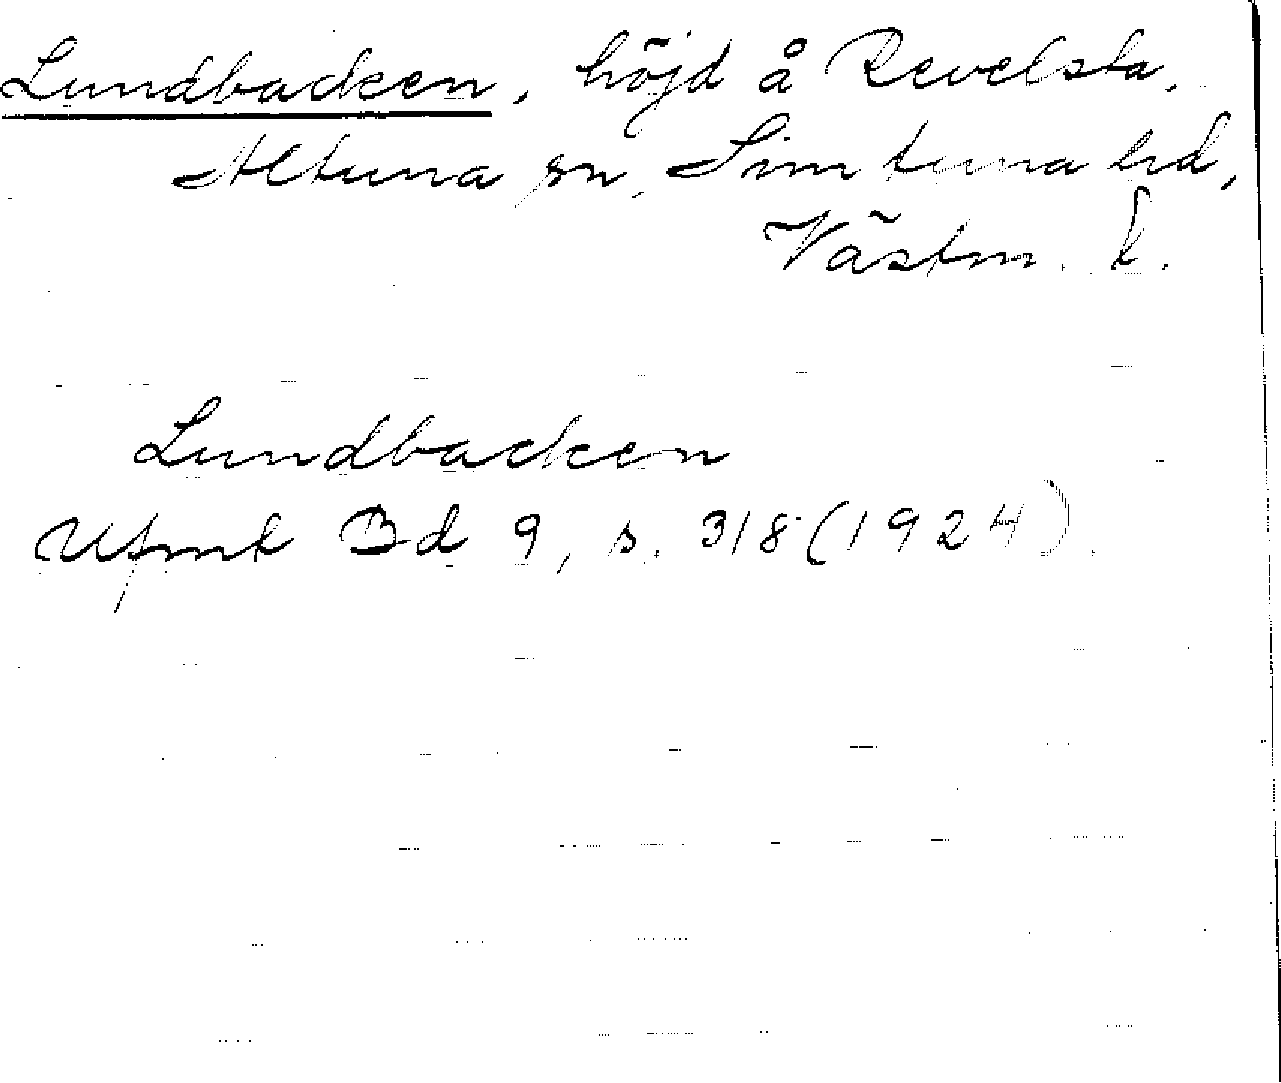 Lundbacken, höjd å Revelsta,
Altuna sn, Simtuna hd,
Västm. l.
Lundbacken
Ufmk Bd 9, s. 318 (1924).